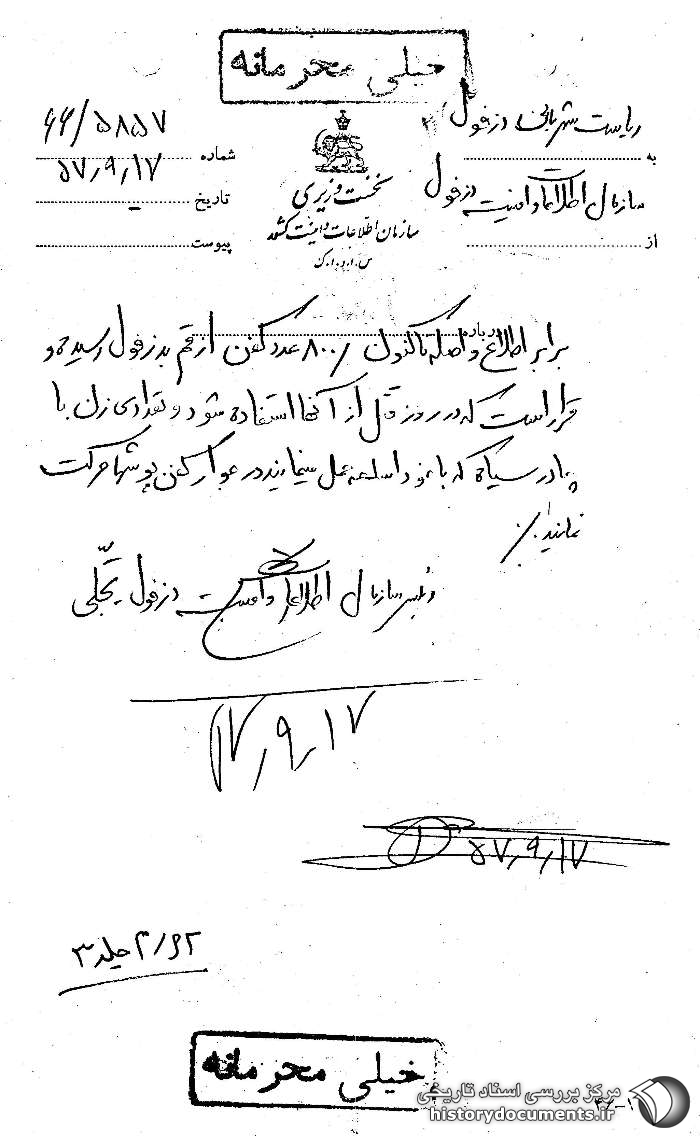 خیلی محرمانه
ریاست شهربانی دزفول
به
شماره ۶۶/۵۸۵۷
نخست وزیری
سازمان اطلاعات و امنیت دزفول
تاریخ ۵۷٫۹٫۱۷
سازمان اطلاعات و امنیت کشور
از
پیوست
س.ا.و.ا.ک
درباره
برابر اطلاع واصله تاکنون /۸۰۰ عدد کفن از قم بدزفول رسیده و
قرار است که در روز قتل از آنها استفاده شود و تعدادی زن با
چادر سیاه که با خود اسلحه حمل مینمایند در جوار کفن پوشها حرکت
نمایند.
رئیس سازمان اطلاعات و امنیت دزفول تجلّی
۱۷٫۹٫۱۷
۵۷٫۹٫۱۷
جلد ۳
خیلی محرمانه
مرکز بررسی اسناد تاریخی
historydocuments.ir